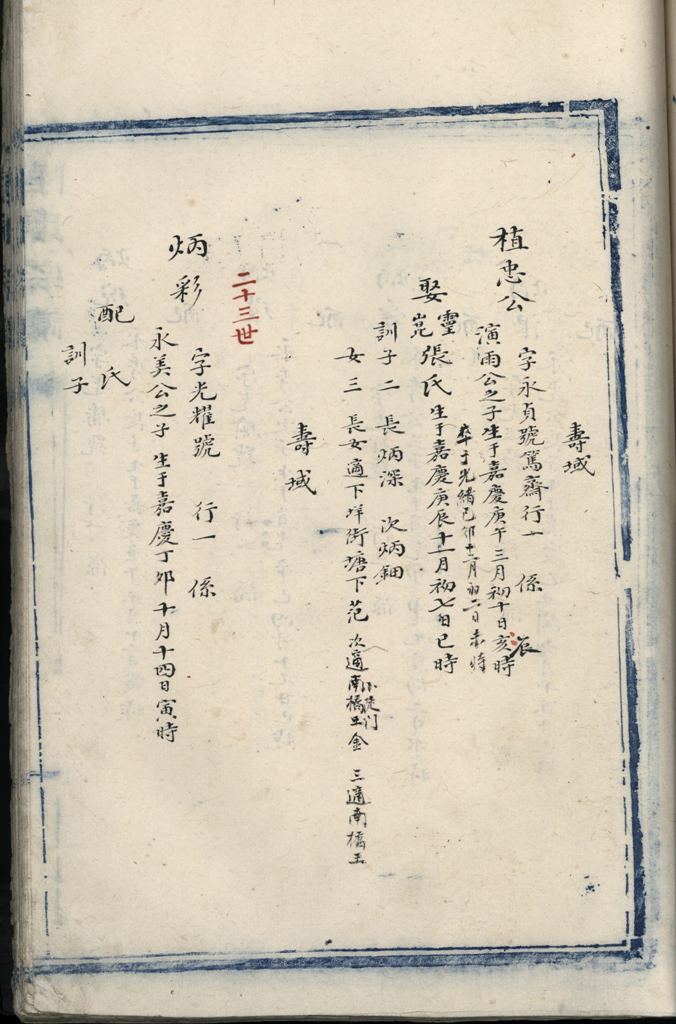 壽域
植忠公
字永貞號篤齋行一 係
演雨公之子生于嘉慶庚午三月初十日亥時
辰
卒于光緒己卯十二月初二日未時
娶靈崑張氏生于嘉慶庚辰十一月初七日巳時
訓子二 長炳深 次炳鈿
女三 長女適下垟街塘下范 次適南橋王金 三適南橋王
小陡门
壽域
二十三世
炳彩
字光耀號 行一 係
永美公之子 生于嘉慶丁卯十月十四日寅時
配 氏
訓子